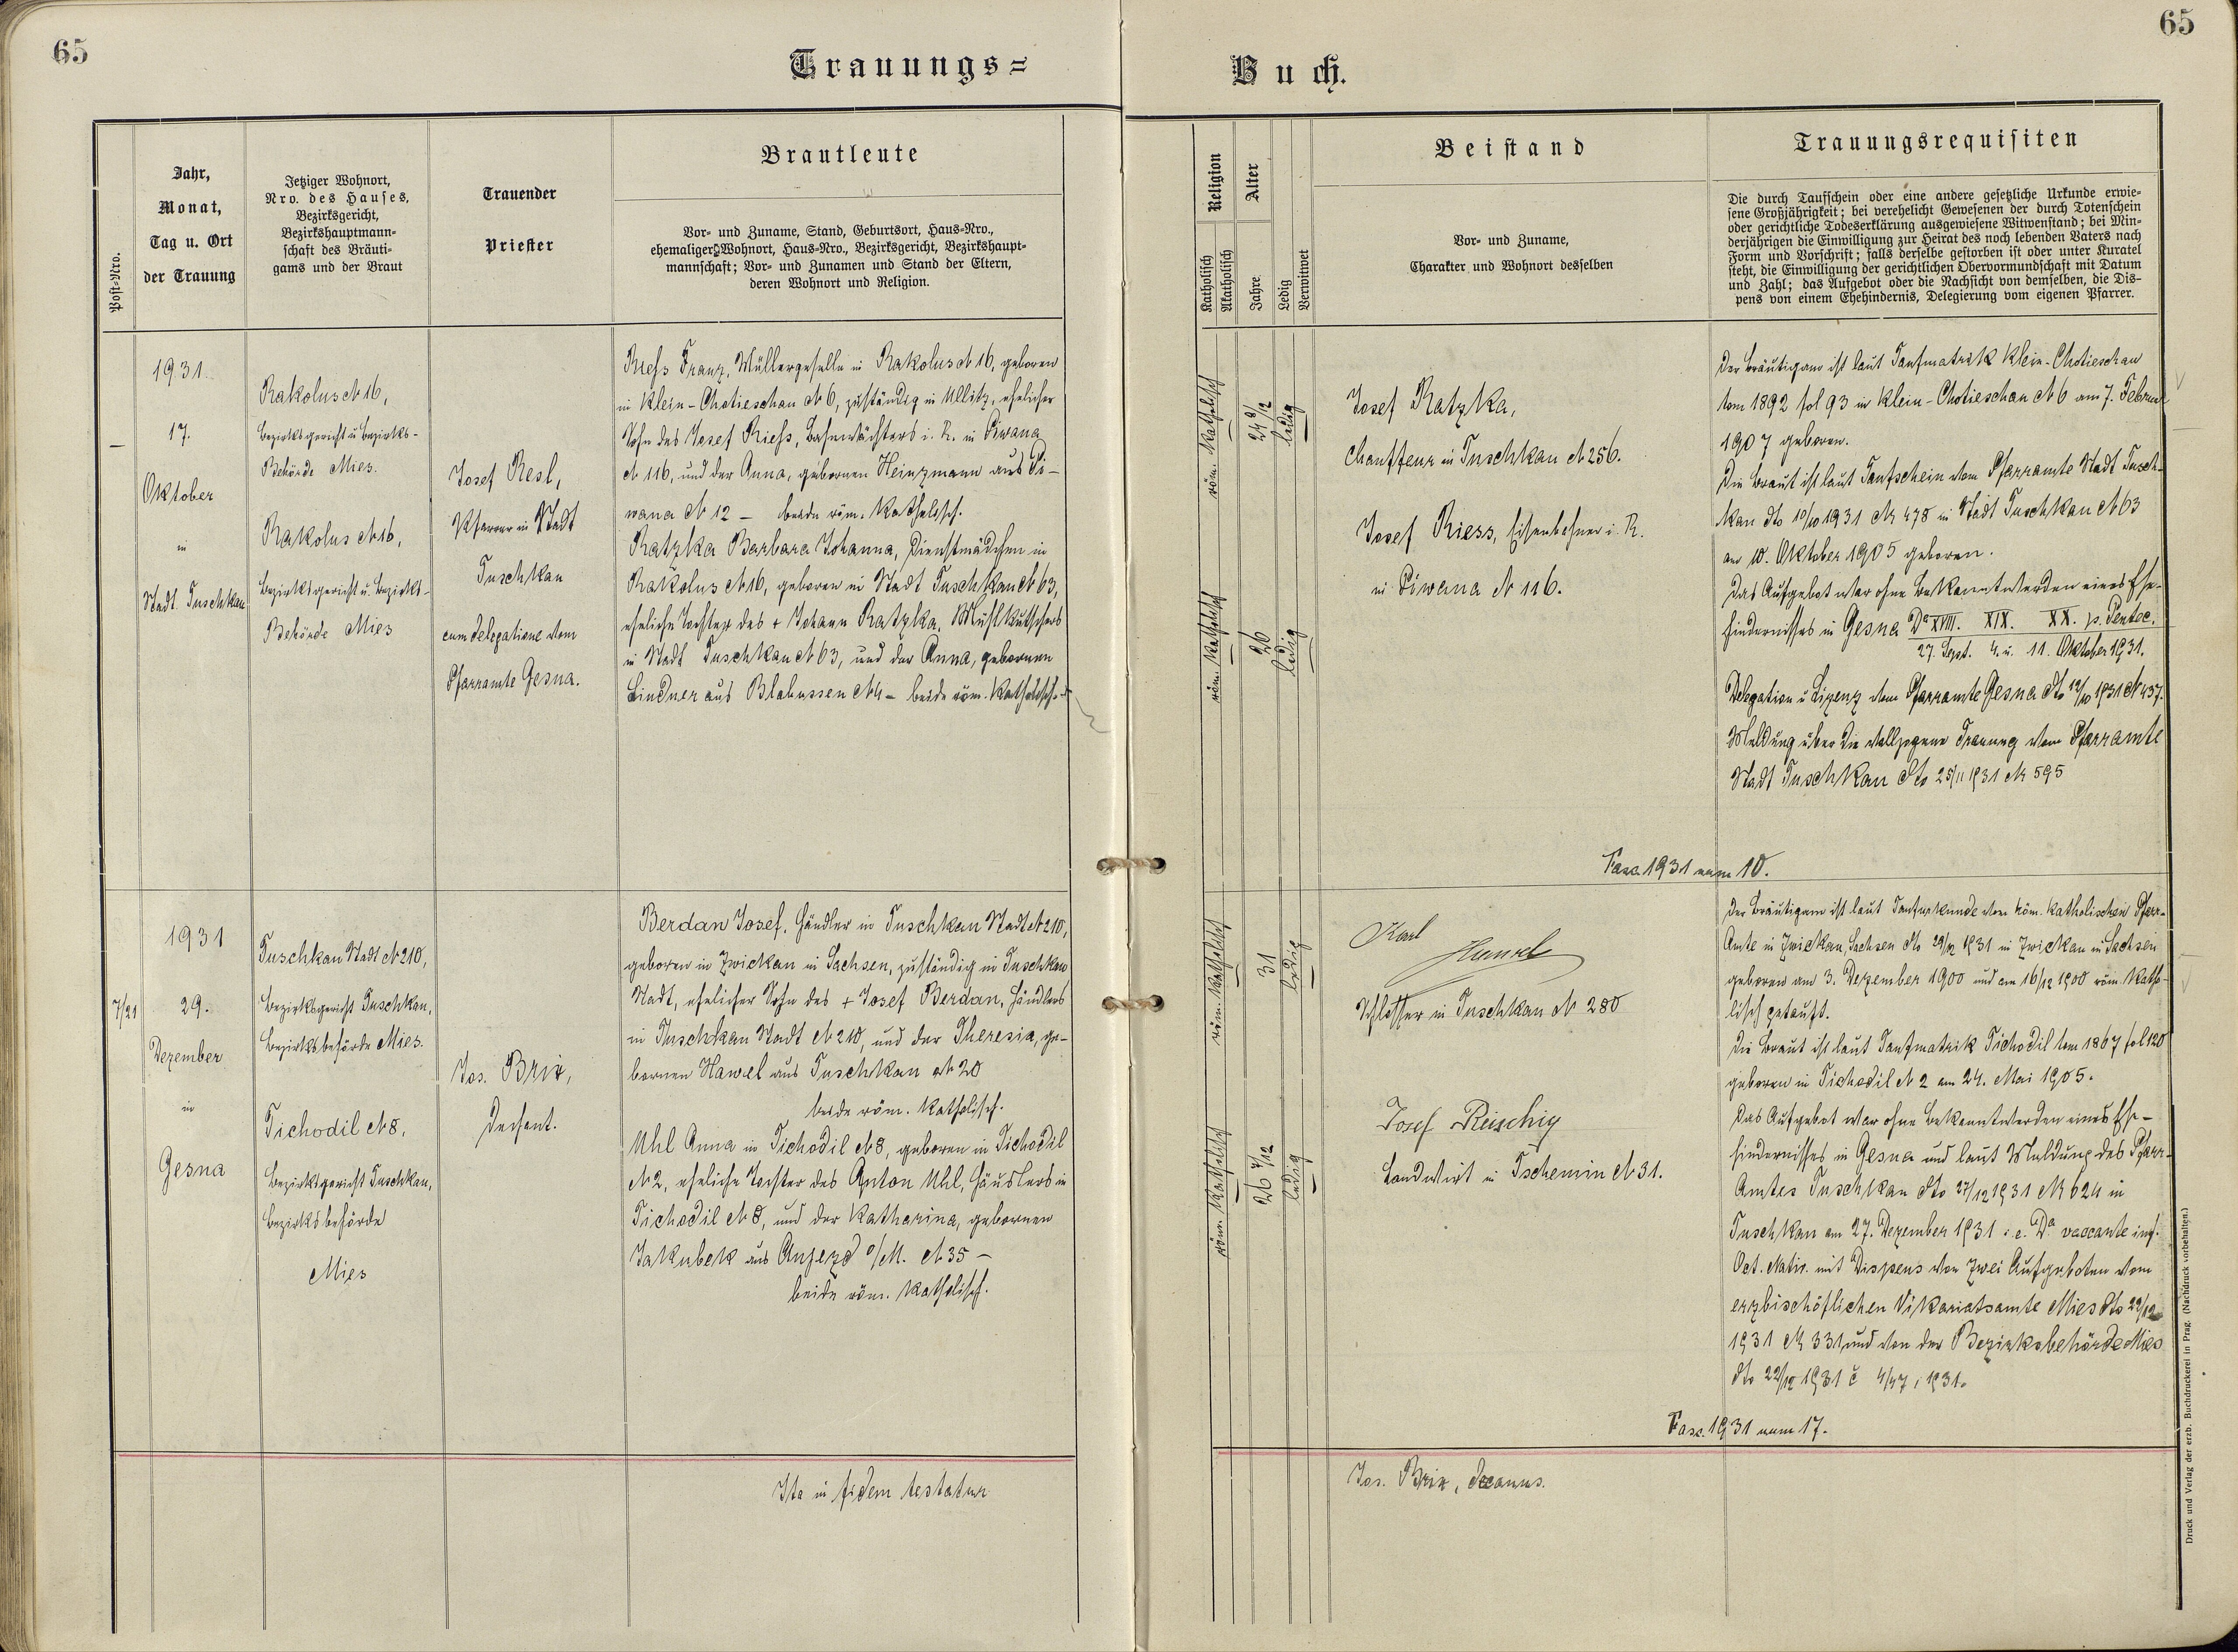 65
65
Trauungs=
Buch.
Post-Nro.
Jahr,
Monat,
Tag u. Ort
der Trauung
Jetziger Wohnort,
Nro. des Hauses,
Bezirksgericht,
Bezirkshauptmann-
schaft des Bräuti-
gams und der Braut
Trauender
Priester
Brautleute
Vor- und Zuname, Stand, Geburtsort, Haus-Nro.,
ehemaliger Wohnort, Haus-Nro., Bezirksgericht, Bezirkshaupt-
mannschaft; Vor- und Zunamen und Stand der Eltern,
deren Wohnort und Religion.
Religion
Katholisch
Akatholisch
Alter
Jahre
Ledig
Verwitwet
Beistand
Vor- und Zuname,
Charakter und Wohnort desselben
Trauungsrequisiten
Die durch Taufschein oder eine andere gesetzliche Urkunde erwie-
sene Großjährigkeit; bei verehelicht Gewesenen der durch Totenschein
oder gerichtliche Todeserklärung ausgewiesene Witwenstand; bei Min-
derjährigen die Einwilligung zur Heirat des noch lebenden Vaters nach
Form und Vorschrift; falls derselbe gestorben ist oder unter Kuratel
steht, die Einwilligung der gerichtlichen Obervormundschaft mit Datum
und Zahl; das Aufgebot oder die Nachsicht von demselben, die Dis-
pens von einem Ehehindernis, Delegierung vom eigenen Pfarrer.
—
1931
17.
Oktober
in
Stadt Tuschkau
Rakolus № 16,
Bezirksgericht u Bezirks-
Behörde Mies.
Rakolus № 16,
Bezirksgericht u. Bezirks-
Behörde Mies
Josef Resl,
Pfarrer in Stadt
Tuschkau
cum delegatione vom
Pfarramte Gesna.
Riess Franz, Müllergeselle in Rakolus № 16, geboren
in Klein-Chotieschau № 6, zuständig in Ullitz, ehelicher
Sohn des Josef Riess, Bahnwächters i. R. in Piwana
№ 116, und der Anna, gebornen Heinzmann aus Pi-
wana № 12 — beide röm. katholisch.
Ratzka Barbara Johanna, Dienstmädchen in
Rakolus № 16, geboren in Stadt Tuschkau № 63,
eheliche Tochter des + Johann Ratzka, Mühlkutschers
in Stadt Tuschkau № 63, und der Anna, gebornen
Lindner aus Blahussen № 4 — beide röm. katholisch.
röm. katholisch
24 8/12
ledig
röm. katholisch
26
ledig
Josef Ratzka,
Chauffeur in Tuschkau № 256.
Josef Riess, Eisenbahner i. R.
in Piwana № 116.
Der Bräutigam ist laut Taufmatrik Klein-Chotieschau
tom 1892 fol 93 in Klein-Chotieschau № 6 am 7. Februar
1907 geboren.
Die Braut ist laut Taufschein vom Pfarramte Stadt Tusch-
kau dto 10/10 1931 № 478 in Stadt Tuschkau № 63
am 10. Oktober 1905 geboren.
Das Aufgebot war ohne Bekanntwerden eines Ehe-
hindernisses in Gesna Dª XVIII. XIX. XX. p. Pentec.
27. Sept. 4. u. 11. Oktober 1931.
Delegation u Lizenz vom Pfarramte Gesna dto 12/10 1931 № 437.
Meldung über die vollzogene Trauung vom Pfarramte
Stadt Tuschkau dto 25/11 1931 № 595
Fasc. 1931 num 10.
7/21
1931
29.
Dezember
in
Gesna
Tuschkau Stadt № 210,
Bezirksgericht Tuschkau,
Bezirksbehörde Mies.
Tichodil № 8,
Bezirksgericht Tuschkau,
Bezirksbehörde
Mies
Jos. Brix,
Dechant.
Berdan Josef, Händler in Tuschkau Stadt № 210,
geboren in Zwickau in Sachsen, zuständig in Tuschkau
Stadt, ehelicher Sohn des + Josef Berdan, Händlers
in Tuschkau Stadt № 210, und der Theresia, ge-
bornen Hawel aus Tuschkau № 20
beide röm. katholisch.
Uhl Anna in Tichodil № 8, geboren in Tichodil
№ 2, eheliche Tochter des Anton Uhl, Häuslers in
Tichodil № 8, und der Katharina, gebornen
Jakubek aus Anjezd o/M. № 35 —
beide röm. katholisch.
röm. katholisch
31
ledig
röm. katholisch
26 7/12
ledig
Karl
Hawel
Schlosser in Tuschkau № 280
Josef Reischig
Landwirt in Tschemin № 31.
Der Bräutigam ist laut Taufurkunde vom röm. katholischen Pfarr-
Amte in Zwickau, Sachsen dto 29/12 1931 in Zwickau in Sachsen
geboren am 3. Dezember 1900 und am 16/12 1900 röm. katho-
lisch getauft.
Die Braut ist laut Taufmatrik Tichodil tom 1867 fol 120
geboren in Tichodil № 2 am 24. Mai 1905.
Das Aufgebot war ohne Bekanntwerden eines Ehe-
hindernisses in Gesna und laut Meldung des Pfarr-
Amtes Tuschkau dto 27/12 1931 № 624 in
Tuschkau am 27. Dezember 1931 i. e. Dª vaccante inf.
Oct. Nativ. mit Dispens von zwei Aufgeboten vom
erzbischöflichen Vikariatsamte Mies dto 22/12
1931 № 331, und von der Bezirksbehörde Mies
dto 22/12 1931 č 4/47, 1931.
Fasc. 1931 num 17.
Ita in fidem testatur
Jos. Brix, Decanus.
Druck und Verlag der erzb. Buchdruckerei in Prag. (Nachdruck vorbehalten.)